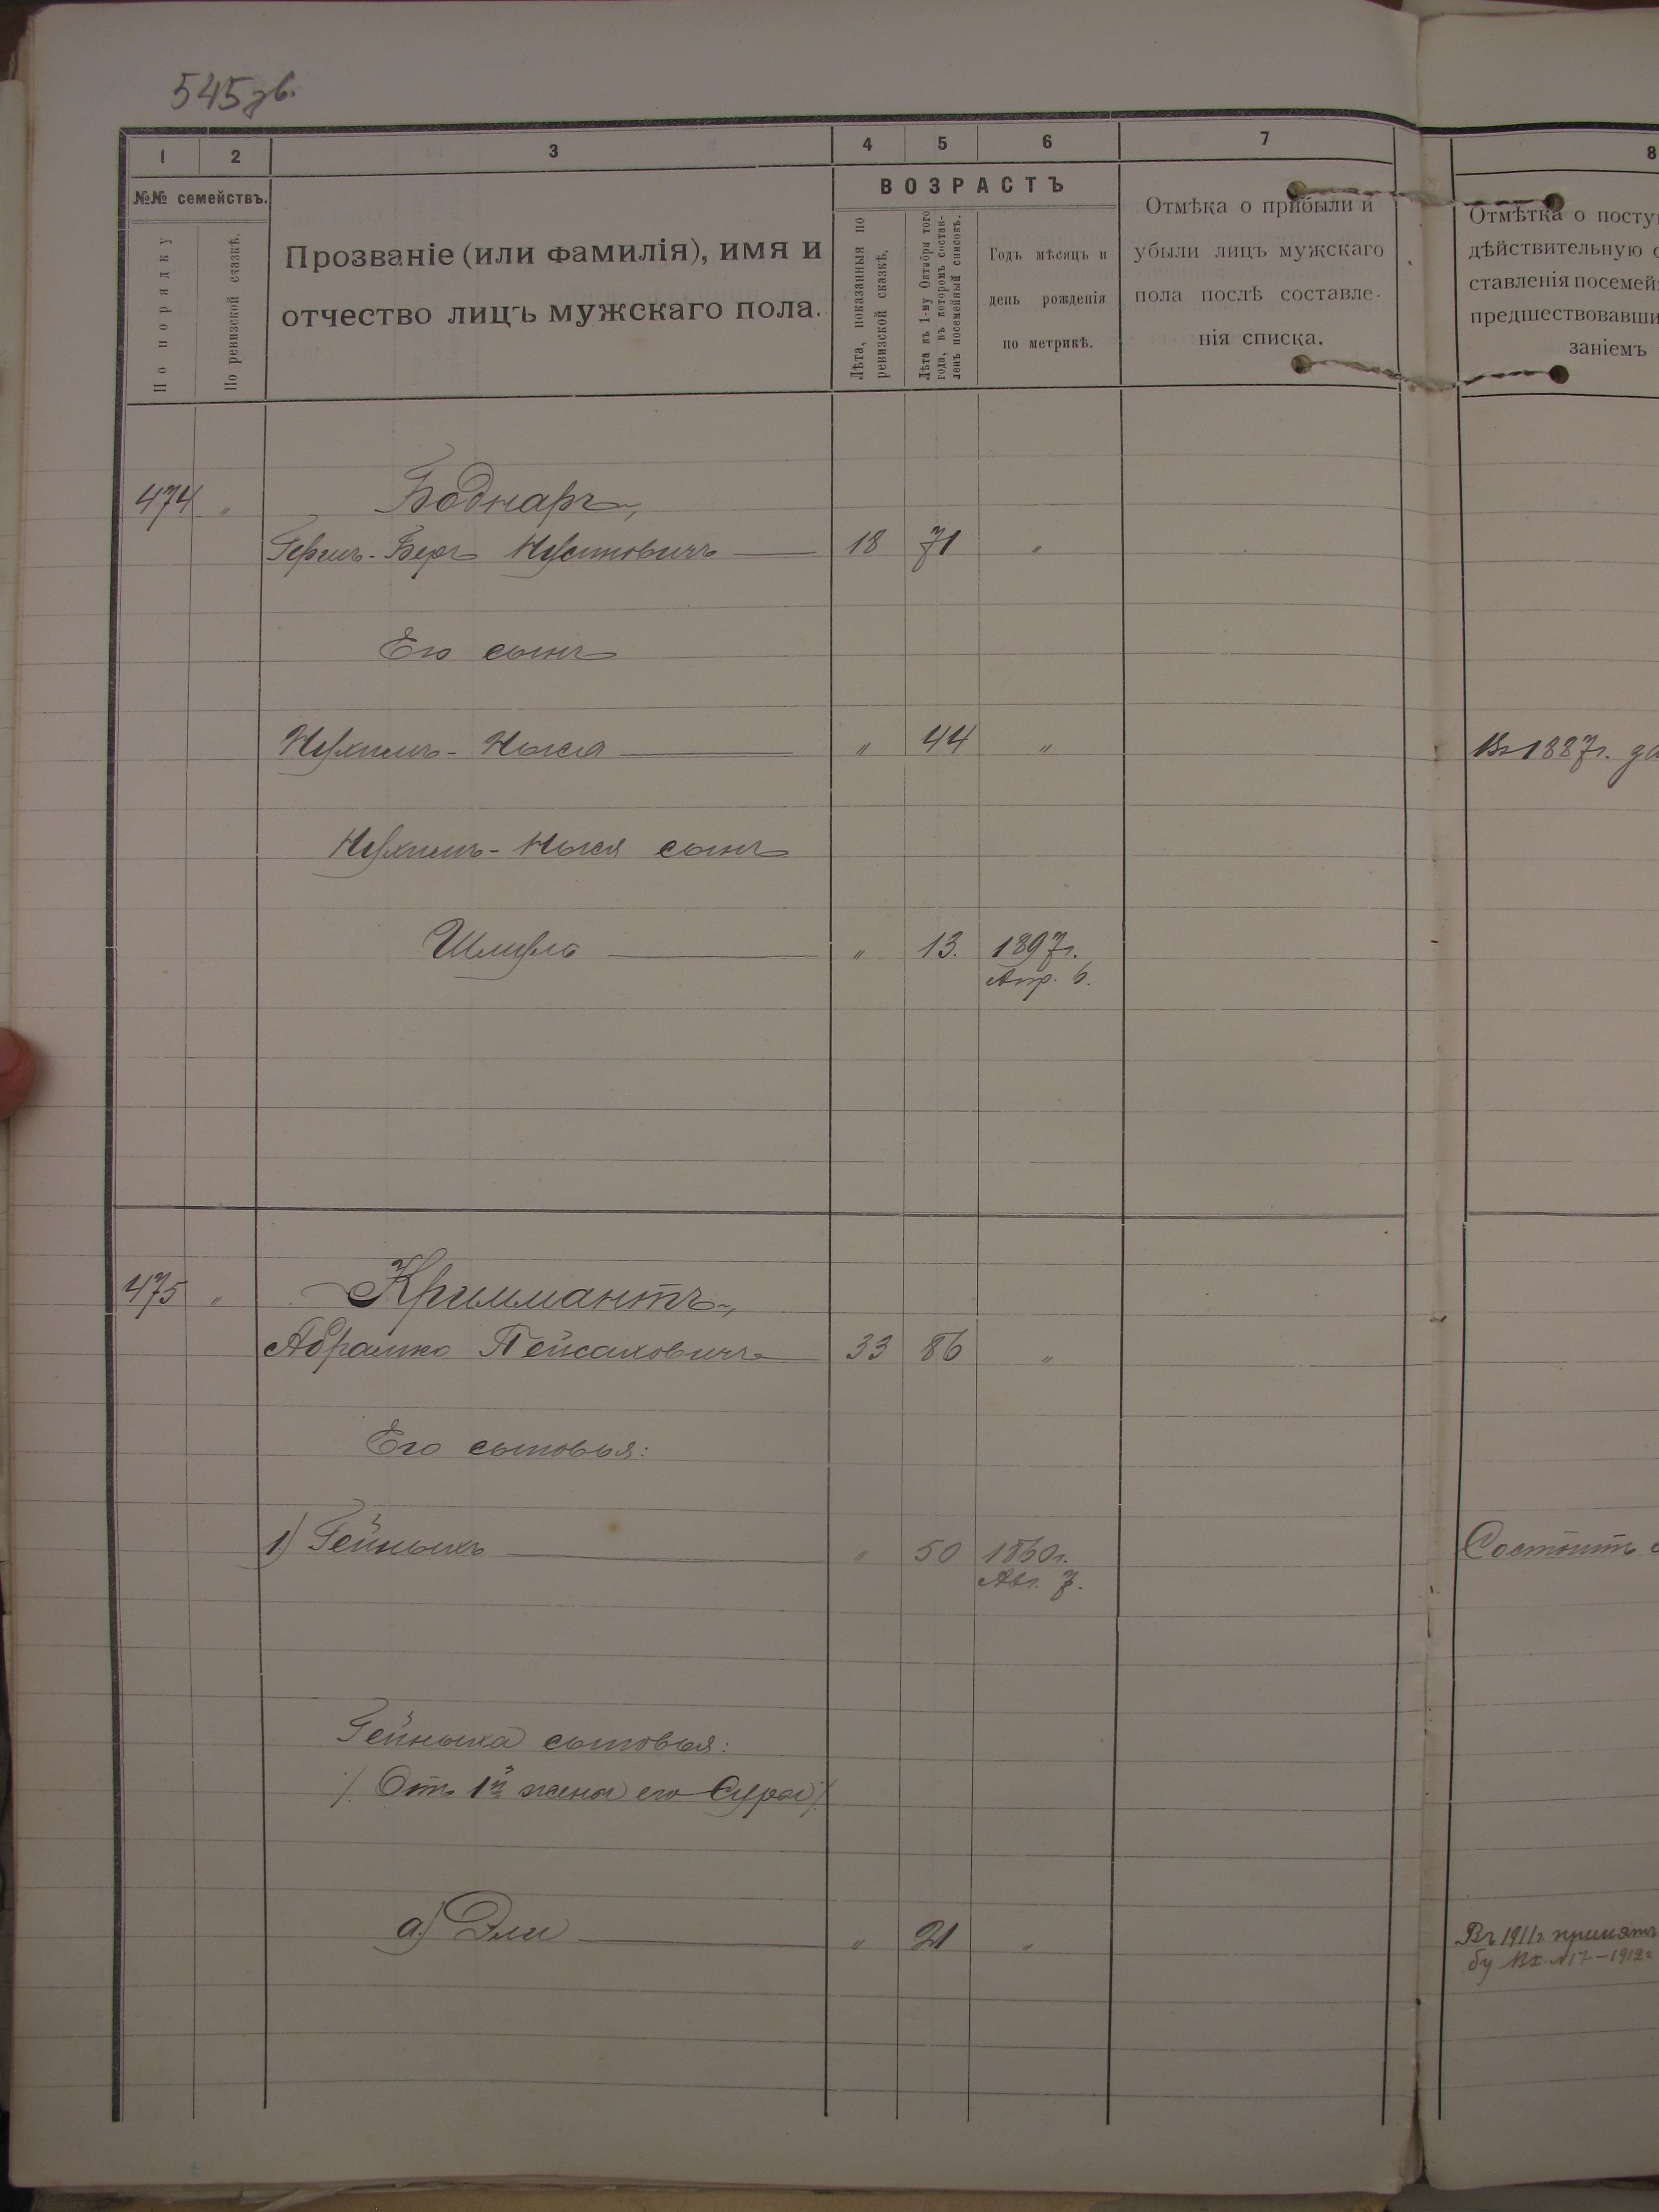 545 зв.
1 2 3 4 5 6 7 8
№№ семействъ.
По порядку
По ревизской сказкѣ.
Прозваніе (или фамилія), имя и
отчество лицъ мужскаго пола.
ВОЗРАСТЪ
Лѣта, показанныя по
ревизской сказкѣ.
Лѣта къ 1-му Октября того
года, въ которомъ состав-
ленъ посемейный списокъ.
Годъ мѣсяцъ и
день рожденія
по метрикѣ.
Отмѣка о прибыли и
убыли лицъ мужскаго
пола послѣ составле-
нія списка.
Отмѣтка о посту
дѣйствительную с
ставленія посемей
предшествовавши
заніемъ
474 " Боднаръ,
Гершъ-Беръ 18 71 "
Его сынъ
Нухимъ-Ныся " 44 " Въ 1887г.
Нухимъ-Ныся сынъ
Шмуль " 13. 1897г.
Апр. 6.
475 " Криммантъ,
Абрамко Пейсаховичъ 33 86 "
Его сыновья:
1) Гейныхъ " 50 1860г.
Авг. 7.
Состоитъ
Гейныха сыновья:
/. Отъ 1й жены его Суры /.
а) Эли " 21 " Въ 1911г. принятъ
1912г